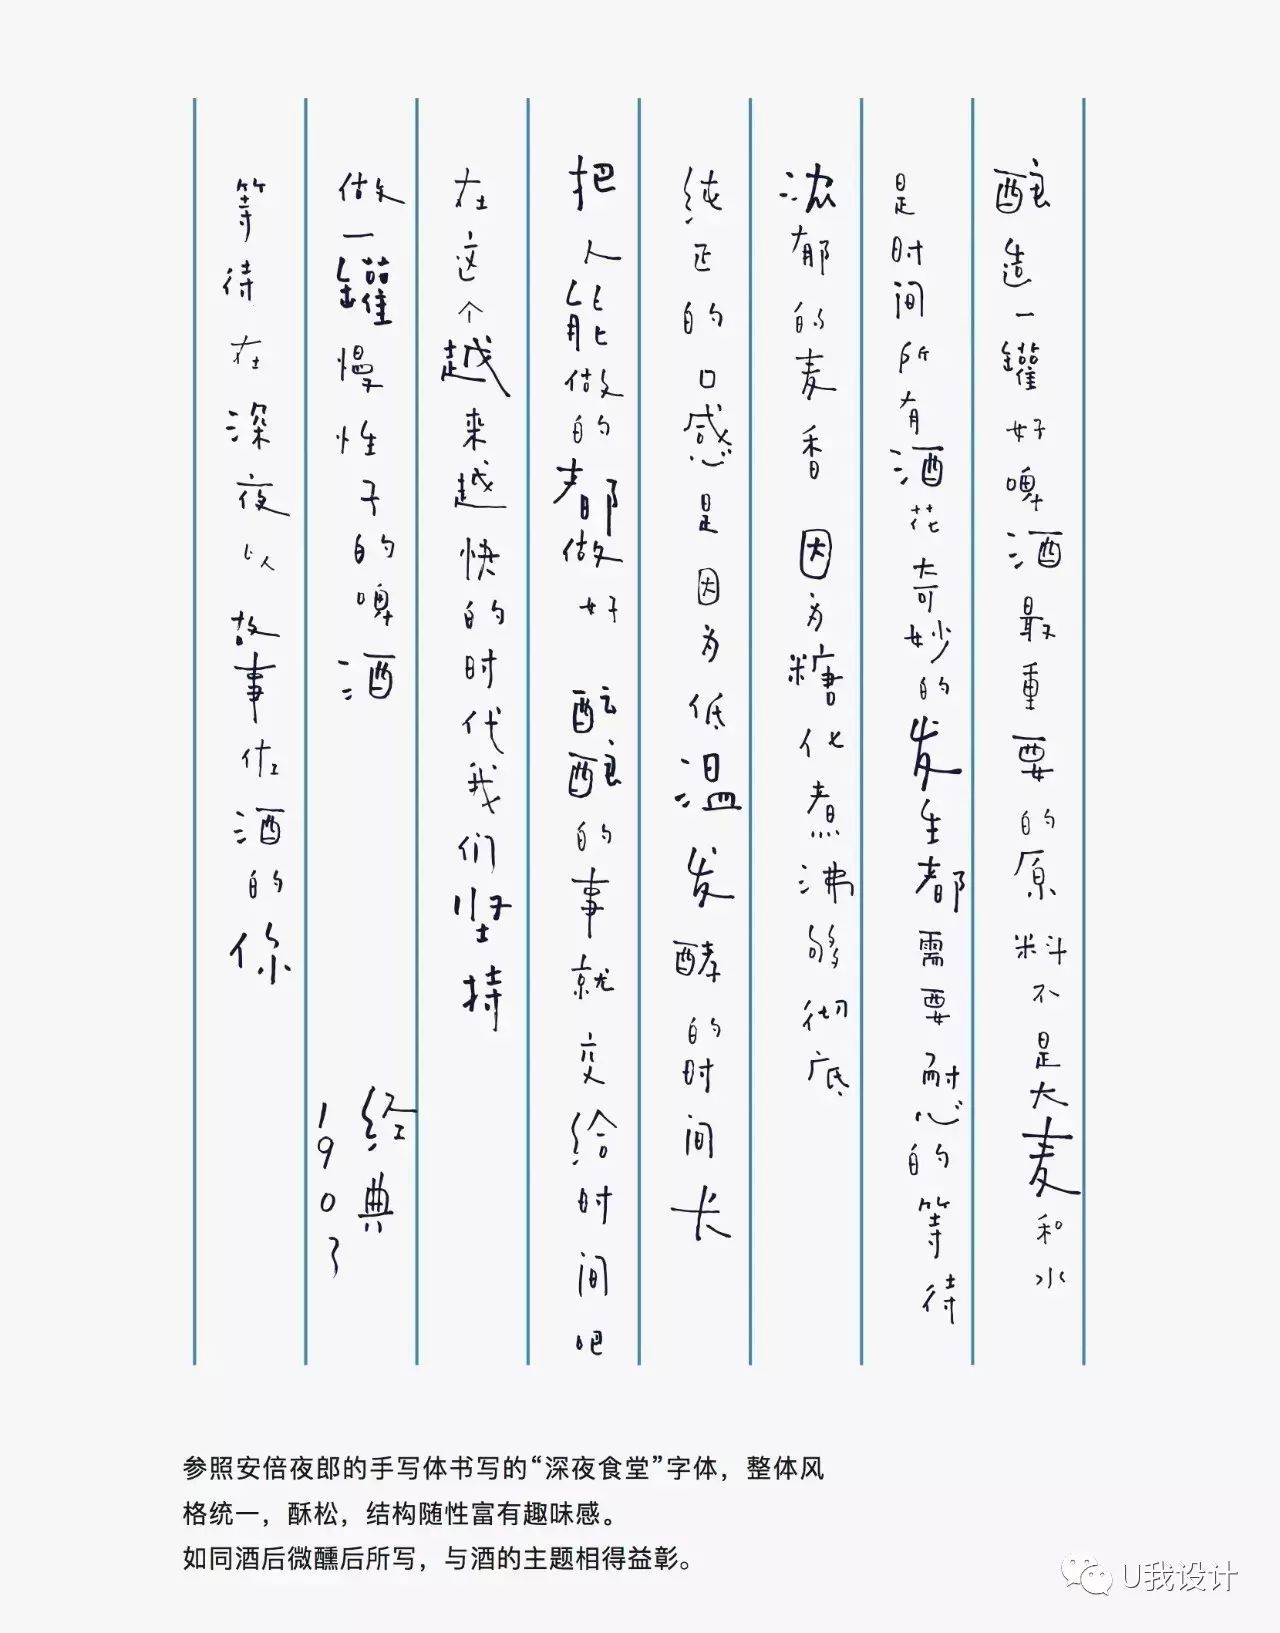 酿造一罐好啤酒最重要的原料不是大麦和水
是时间所有酒花奇妙的发生都需要耐心的等待
浓郁的麦香 因为糖化煮沸够彻底
纯正的口感是因为低温发酵的时间长
把人能做的都做好 酝酿的事就交给时间吧
在这个越来越快的时代我们坚持
做一罐慢性子的啤酒
经典
1903
等待在深夜以故事佐酒的你
参照安倍夜郎的手写体书写的“深夜食堂”字体，整体风
格统一，酥松，结构随性富有趣味感。
如同酒后微醺后所写，与酒的主题相得益彰。
U我设计